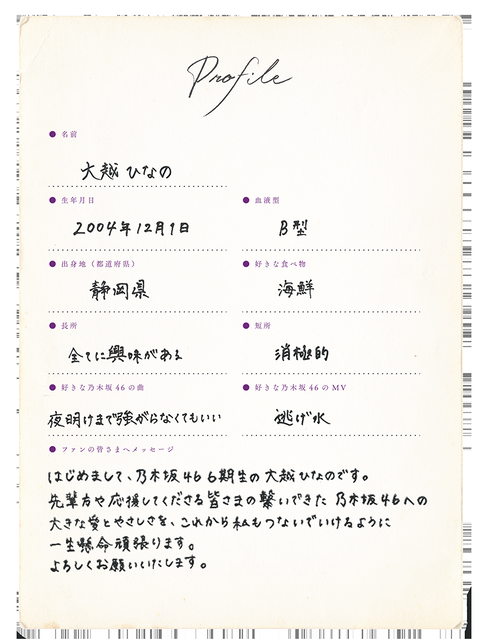 Profile
● 名前
大越 ひなの
● 生年月日
2004年12月9日
● 血液型
B型
● 出身地（都道府県）
静岡県
● 好きな食べ物
海鮮
● 長所
全てに興味がある
● 短所
消極的
● 好きな乃木坂46の曲
夜明けまで強がらなくてもいい
● 好きな乃木坂46のMV
逃げ水
● ファンの皆さまへメッセージ
はじめまして、乃木坂46 6期生の大越ひなのです。
先輩方や応援してくださる皆さまの繋いできた 乃木坂46への
大きな愛とやさしさを、これから私もつないでいけるように
一生懸命頑張ります。
よろしくお願いいたします。